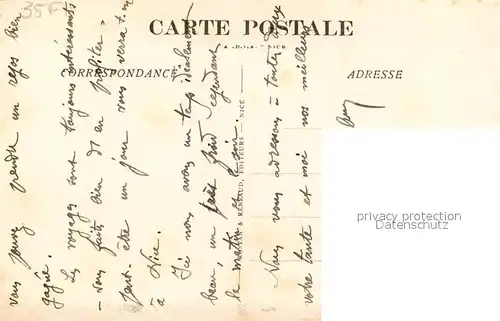 35F
CARTE POSTALE
A.D.I.A. - NICE
CORRESPONDANCE
ADRESSE
vous pouvez prendre un repos bien
gagné.
Les voyages sont toujours intéressants
vous faites bien d'en profiter
peut-être un jour vous verra-t-on
à Nice.
Ici nous avons un temps idéalement
beau, un peu froid cependant
le matin et le soir.
Nous vous adressons à toutes deux
votre tante et moi nos meilleurs
& RENAUD, EDITEURS - NICE
privacy protection
www.oldthing.de